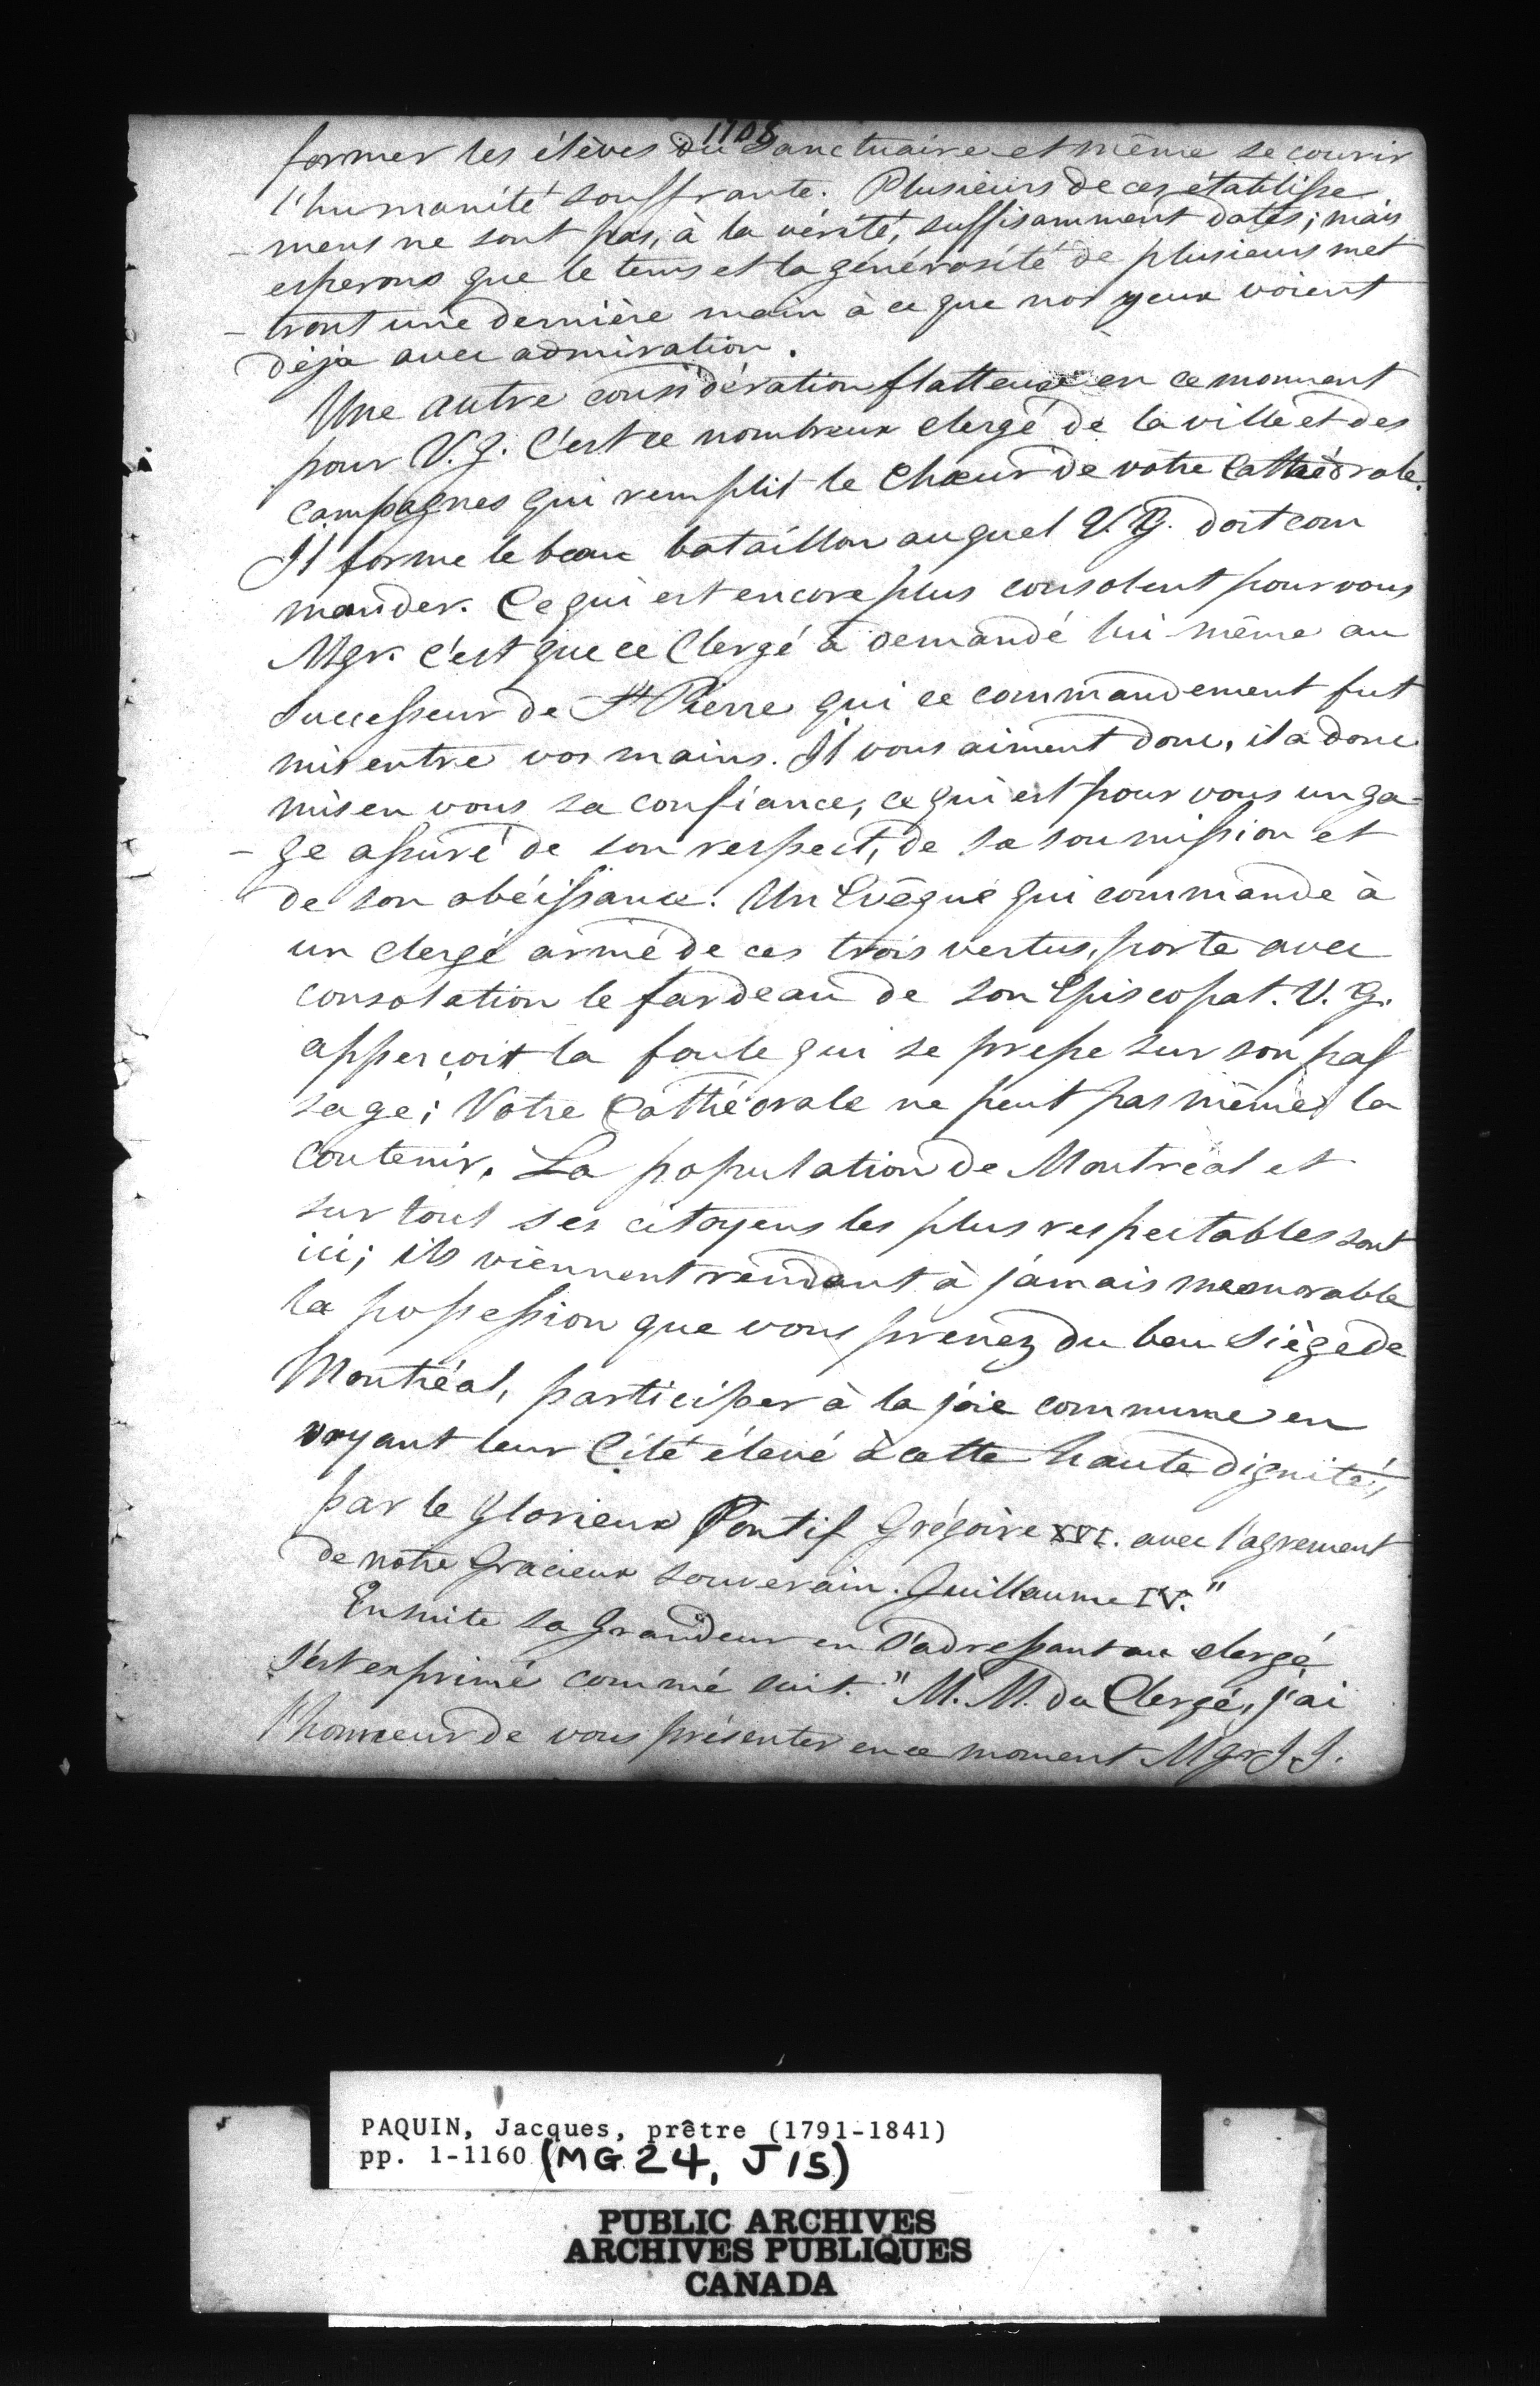 1108
former les élèves du Sanctuaire et même secourir
l'humanité souffrante. Plusieurs de ces établisse
- mens ne sont pas, à la vérité, suffisamment dotés; mais
esperons que le tems et la générosité de plusieurs met
- tront une dernière main à ce que nos yeux voient
déja avec admiration.
Une autre considération flatteuse en ce moment
pour V. G. C'est ce nombreux clergé de la ville et des
campagnes qui remplit le Chœur de votre Cathédrale.
Il forme le beau bataillon auquel V. G. doit com
mander. Ce qui est encore plus consolent pour vous
Mgr. c'est que ce Clergé a demandé lui-même au
Successeur de St Pierre qui ce commandement fut
mis entre vos mains. Il vous aiment donc, il a donc
mis en vous sa confiance, ce qui est pour vous un ga-
- ge assuré de son respect, de sa soumission et
de son obéissance. Un Evêque qui commande à
un clergé armé de ces trois vertus, porte avec
consolation le fardeau de son Episcopat. V. G.
apperçoit la foule qui se presse sur son pas
sage; Votre Cathédrale ne peut pas même la
contenir. La population de Montréal et
sur tout ses citoyens les plus respectables sont
ici; ils viennent rendant à jamais memorable
la possession que vous prenez du beau Siège de
Montréal, participer à la joie commune en
voyant leur Cité élevé à cette haute dignité,
par le glorieux Pontif Grégoire XVI. avec l'agrement
de notre Gracieux souverain. Guillaume IV."
Ensuite sa Grandeur en s'adressant au clergé
s'est exprimé comme suit. "M. M. du Clergé, j'ai
l'honneur de vous présenter en ce moment Mgr J. J.
PAQUIN, Jacques, prêtre (1791-1841)
pp. 1-1160 (MG 24, J 15)
PUBLIC ARCHIVES
ARCHIVES PUBLIQUES
CANADA